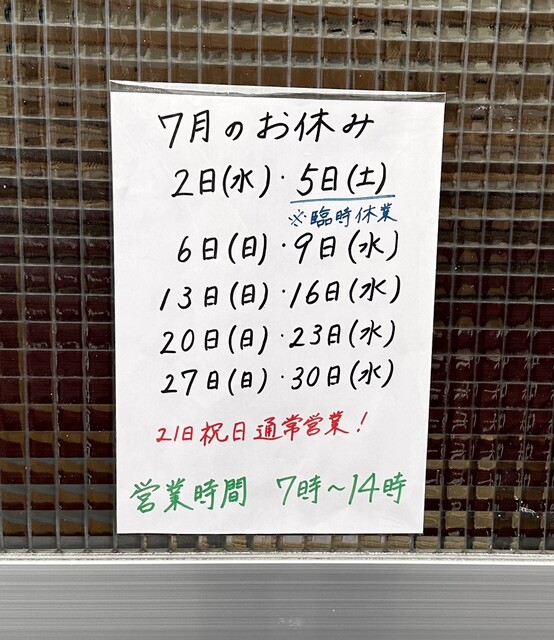 7月のお休み
2日(水)・5日(土)
※臨時休業
6日(日)・9日(水)
13日(日)・16日(水)
20日(日)・23日(水)
27日(日)・30日(水)
21日祝日通常営業!
営業時間 7時~14時